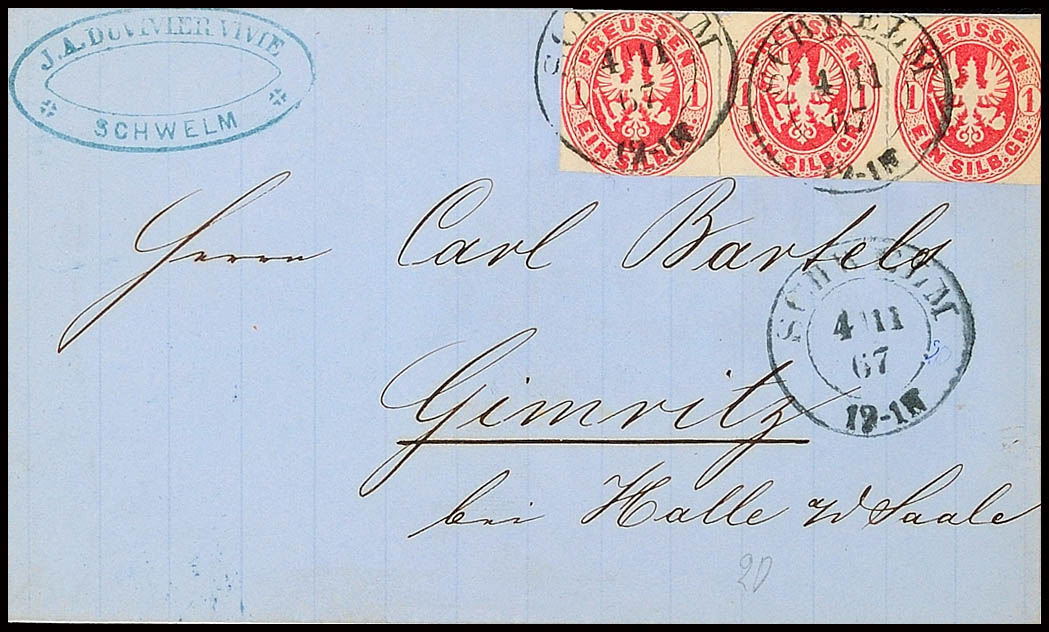 J. A. DUVIVIER VIVIE
SCHWELM
PREUSSEN
1 1
EIN SILB. GR.
PREUSSEN
EIN SILB. GR.
PREUSSEN
1 1
EIN SILB. GR.
SCHWELM
4 11
67
12-1N
SCHWELM
4 11
67
12-1N
Herrn Carl Bartels
SCHWELM
4 11
67
12-1N
Gimritz
bei Halle a/d Saale
20